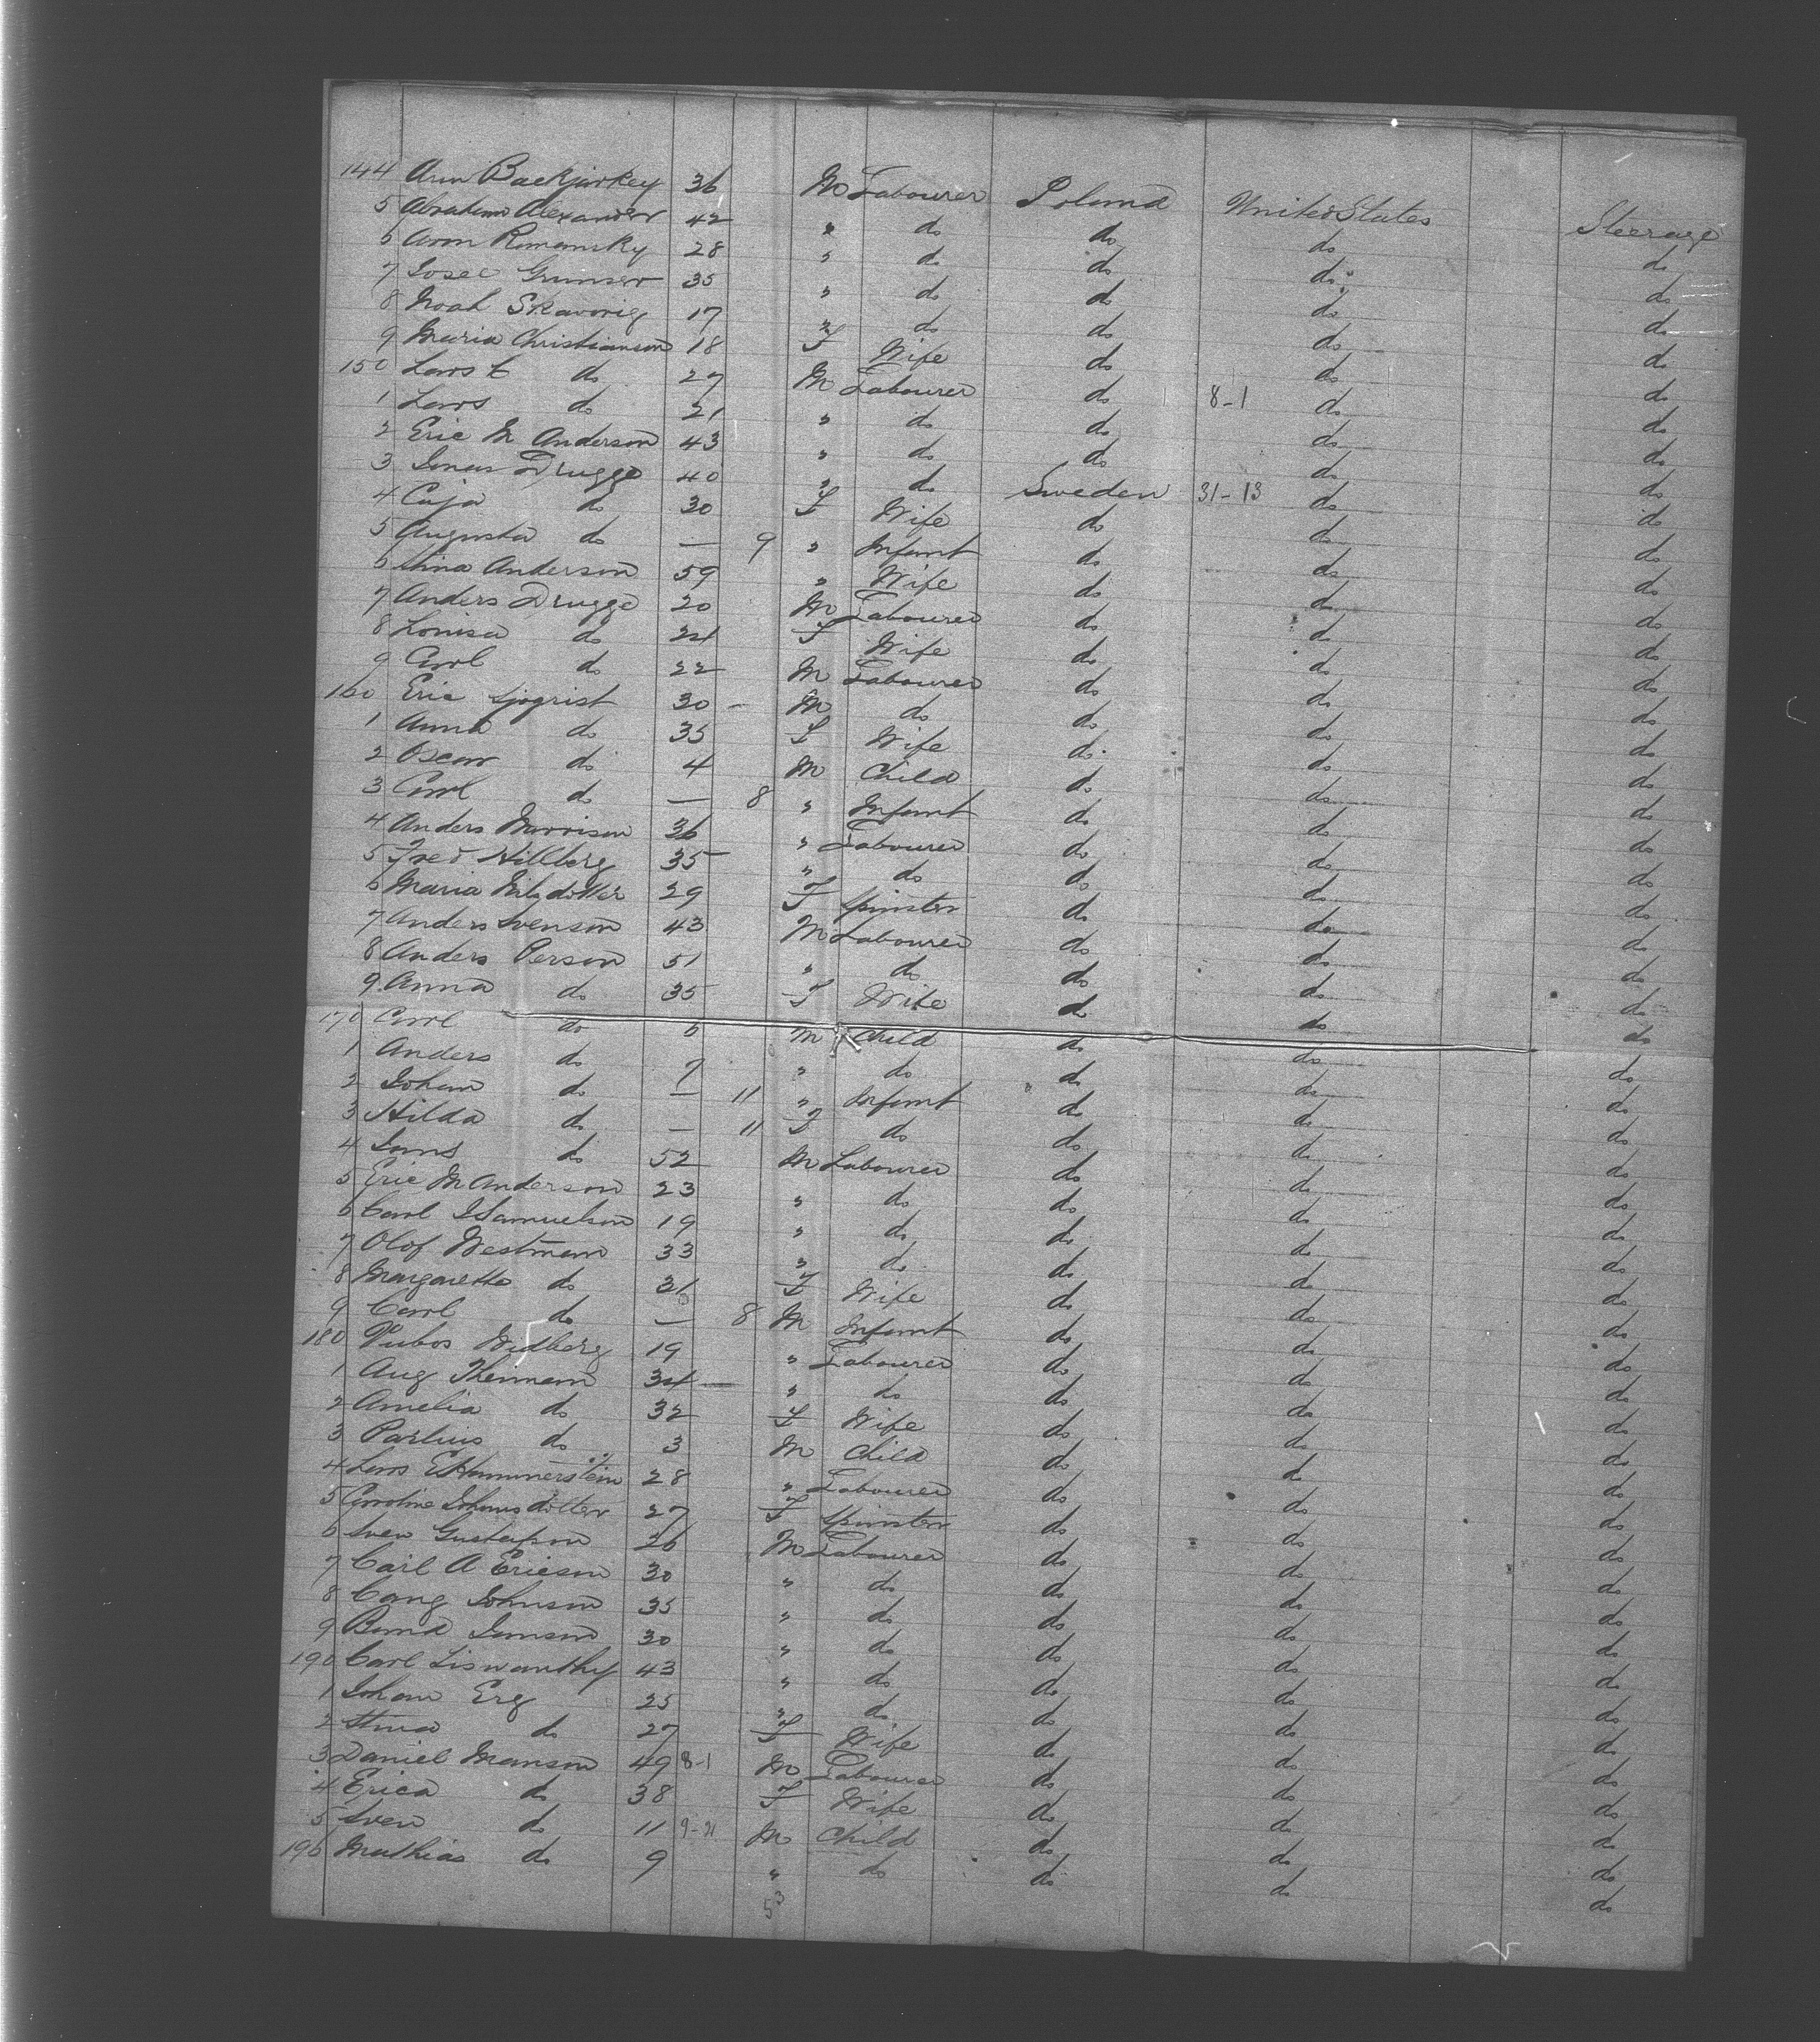 144 Arm Backjarkey 36 M Labourer Poland United States Steerage
5 Abraham Alexander 42 " do do do do
6 Aron Romansky 28 " do do do do
7 Josee Grunser 35 " do do do do
8 Noah Skavorig 17 " do do do do
9 Maria Christianson 18 F Wife do do do
150 Lars C do 27 M Labourer do 8-1 do do
1 Lars do 21 " do do do do
2 Eric M Anderson 43 " do do do do
3 Jonas Drugge 40 " do Sweden 31-13 do do
4 Caja do 30 F Wife do do do
5 Augusta do — 9 " Infant do do do
6 Stina Anderson 59 " Wife do do do
7 Anders Drugge 20 M Labourer do do do
8 Louisa do 24 F Wife do do do
9 Carl do 22 M Labourer do do do
160 Eric Sjogrist 30 - M do do do do
1 Anna do 35 F Wife do do do
2 Oscar do 4 M Child do do do
3 Carl do — 8 " Infant do do do
4 Anders Morrison 36 " Labourer do do do
5 Fred Hillberg 35 " do do do do
6 Maria Nilsdotter 29 F Spinster do do do
7 Anders Svenson 43 M Labourer do do do
8 Anders Person 51 " do do do do
9 Anna do 35 F Wife do do do
170 Carl do 6 M Child do do do
1 Anders do 7 " do do do do
2 Johan do — 11 " Infant do do do
3 Hilda do — 11 F do do do do
4 Jans do 52 M Labourer do do do
5 Eric M Anderson 23 " do do do do
6 Carl J Samuelson 19 " do do do do
7 Olof Westmann 33 " do do do do
8 Margaretta do 31 F Wife do do do
9 Carl do — 8 M Infant do do do
180 Widberg 19 " Labourer do do do
1 Aug Thermann 34 — " do do do do
2 Amelia do 32 F Wife do do do
3 do 3 M Child do do do
4 Lars E Hammerstein 28 " Labourer do do do
5 Caroline Johansdotter 27 F Spinster do do do
6 Sven Gustafson 26 M Labourer do do do
7 Carl A Ericson 30 " do do do do
8 Johnson 35 " do do do do
9 Jonson 30 " do do do do
190 Carl Liswanthy 43 " do do do do
1 Johan Erg 25 " do do do do
2 Stina do 27 F Wife do do do
3 Daniel Manson 49 8-1 M Labourer do do do
4 Erica do 38 F Wife do do do
5 Sven do 11 9-21 M Child do do do
196 Mathias do 9 " do do do do
53